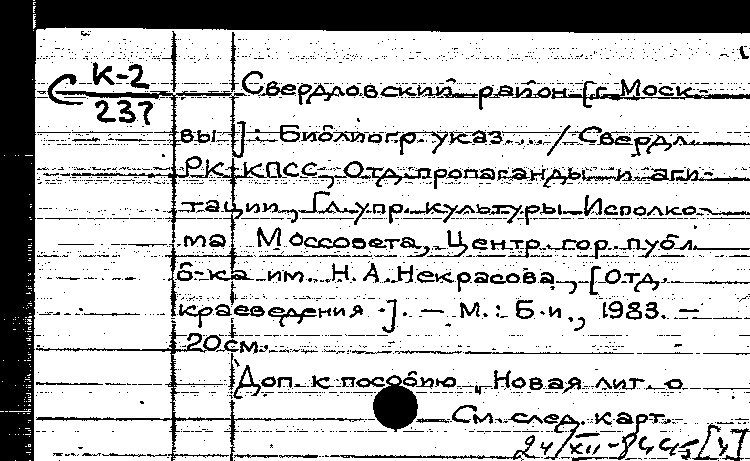 С К-2
237
Свердловский район [г. Моск-
вы]: Библиогр. указ.... / Свердл.
РК КПСС, Отд. пропаганды и аги-
тации, Гл. упр. культуры Исполко-
ма Моссовета, Центр. гор. публ.
б-ка им. Н.А. Некрасова, [Отд.
краеведения.]. — М.: Б.и., 1983. —
20 см.
Доп. к пособию „Новая лит. о
См. след. карт.
24/XII-84